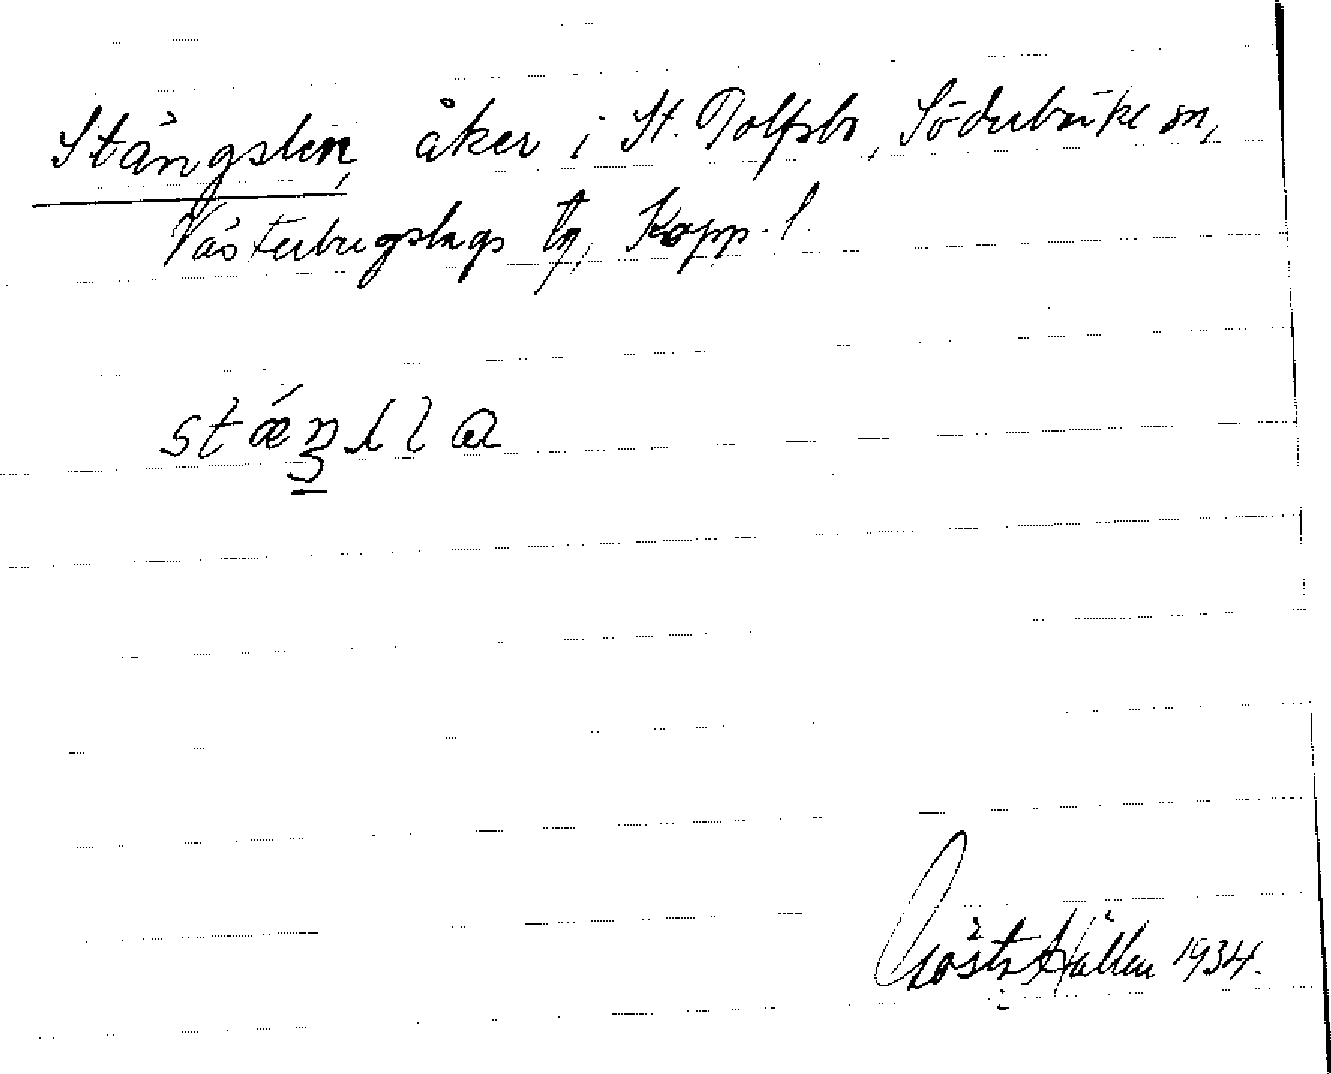 Stängslen, åker i St. Tolfsbo, Söderbärke sn,
Västerbergslags tg, Kopp. l.
Gösta Hållen 1934.